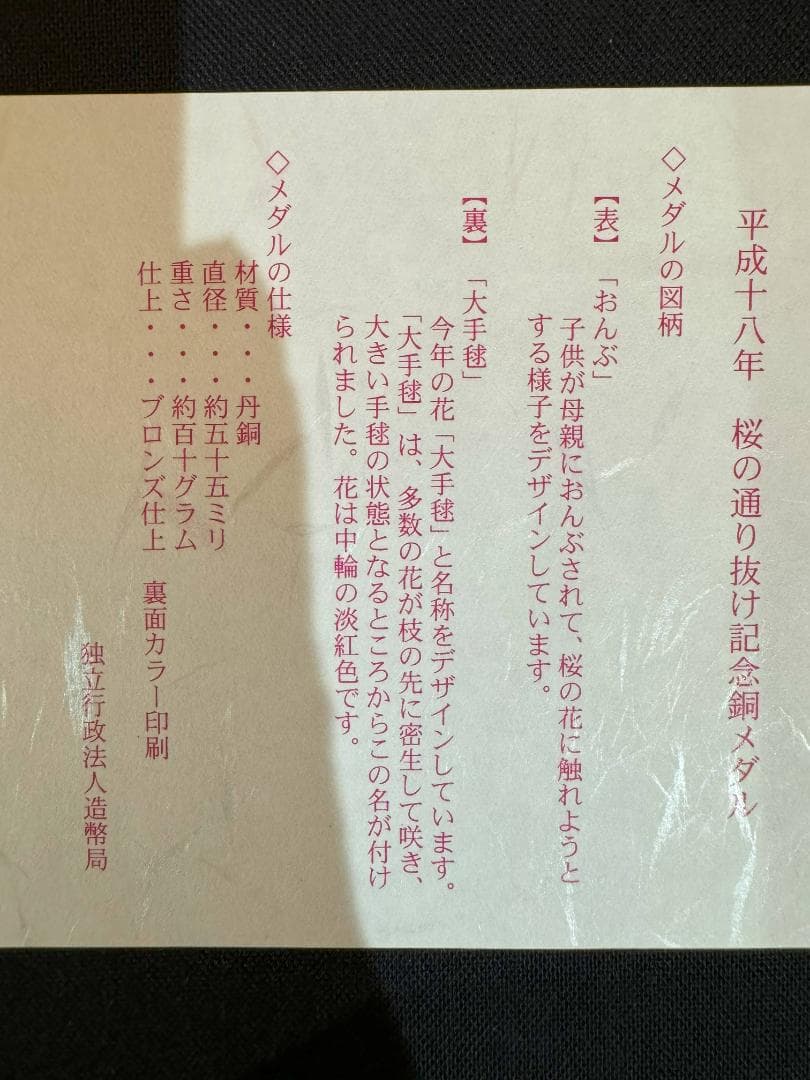 平成十八年 桜の通り抜け記念銅メダル
◇メダルの図柄
【表】 「おんぶ」
子供が母親におんぶされて、桜の花に触れようと
する様子をデザインしています。
【裏】 「大手毬」
今年の花「大手毬」と名称をデザインしています。
「大手毬」は、多数の花が枝の先に密生して咲き、
大きい手毬の状態となるところからこの名が付け
られました。花は中輪の淡紅色です。
◇メダルの仕様
材質・・・丹銅
直径・・・約五十五ミリ
重さ・・・約百十グラム
仕上・・・ブロンズ仕上 裏面カラー印刷
独立行政法人造幣局